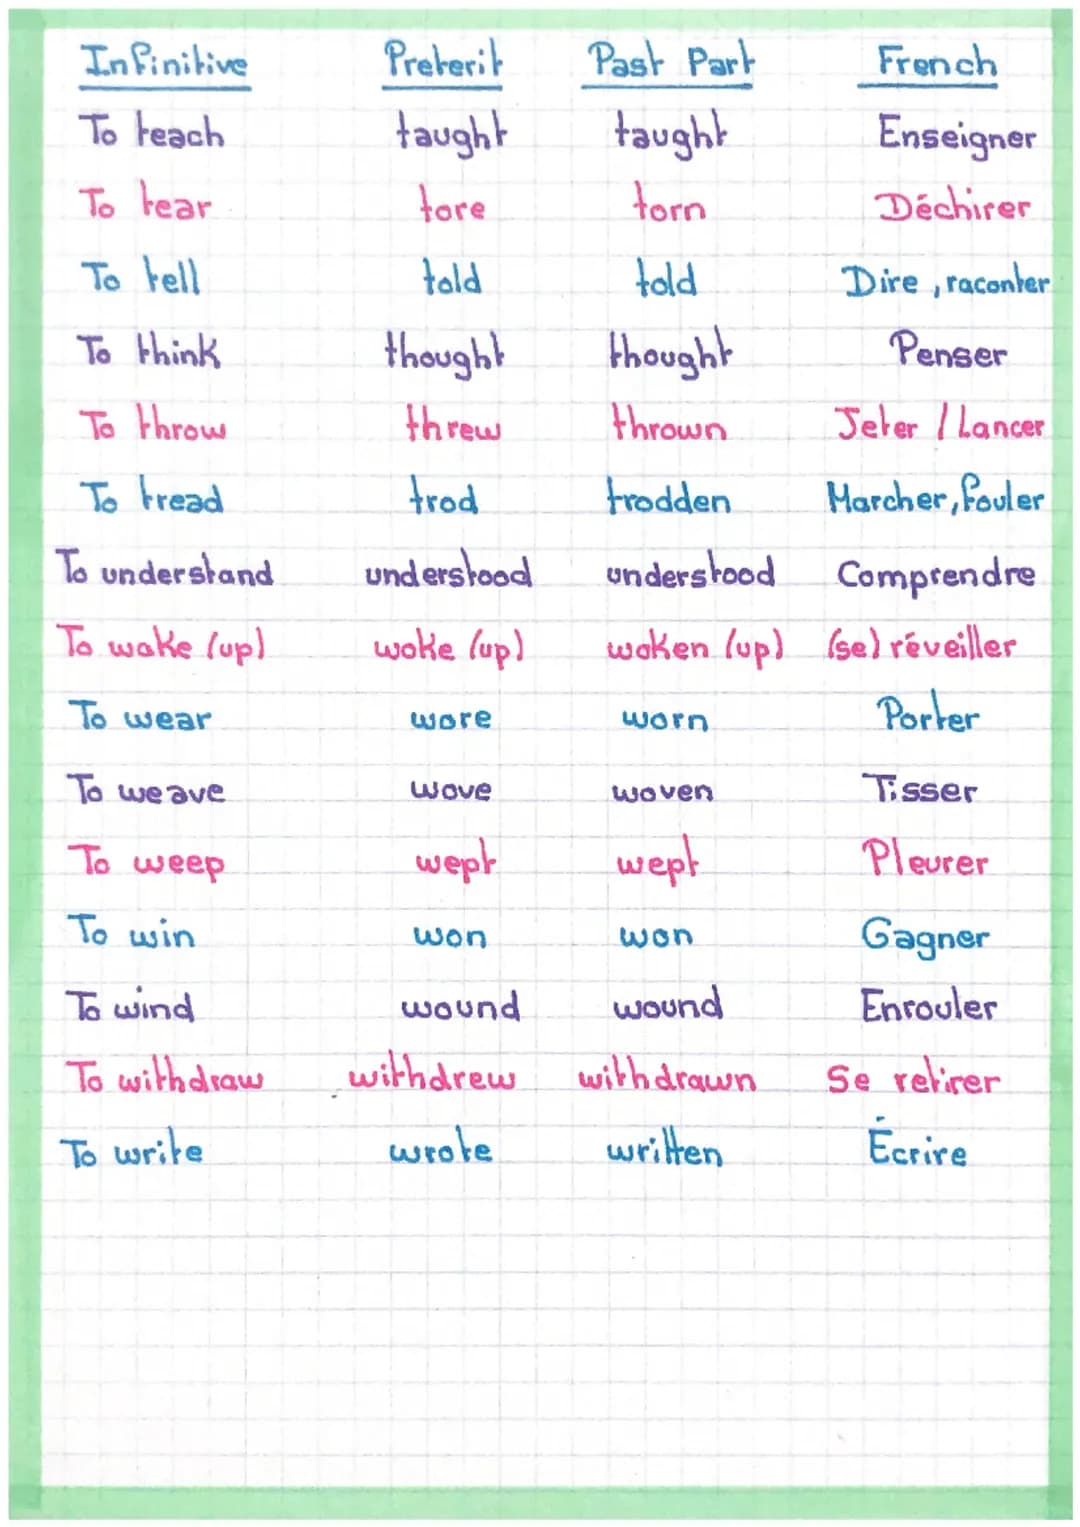 Infinitive Preterit Past Part French
To teach taught taught Enseigner
To tear tore torn Déchirer
To tell told told Dire, raconter
To think thought thought Penser
To throw threw thrown Jeter / Lancer
To tread trod trodden Marcher, fouler
To understand understood understood Comprendre
To wake (up) woke (up) woken (up) (se) réveiller
To wear wore worn Porter
To weave wove woven Tisser
To weep wept wept Pleurer
To win won won Gagner
To wind wound wound Enrouler
To withdraw withdrew withdrawn Se retirer
To write wrote written Écrire